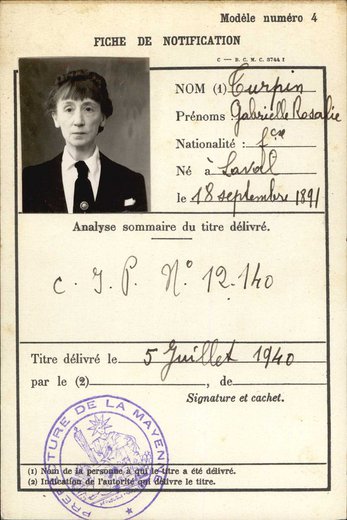 Modèle numéro 4
FICHE DE NOTIFICATION
C — B. C. M. C. 3744 I
NOM (1) Turpin
Prénoms : Gabrielle Rosalie
Nationalité : fçse
Né à Laval
le 18 septembre 1891
Analyse sommaire du titre délivré.
C. I. P. N° 12.140
Titre délivré le 5 Juillet 1940
par le (2) , de
Signature et cachet.
PRÉFECTURE DE LA MAYENNE
(1) Nom de la personne à qui le titre a été délivré.
(2) Indication de l'autorité qui délivre le titre.